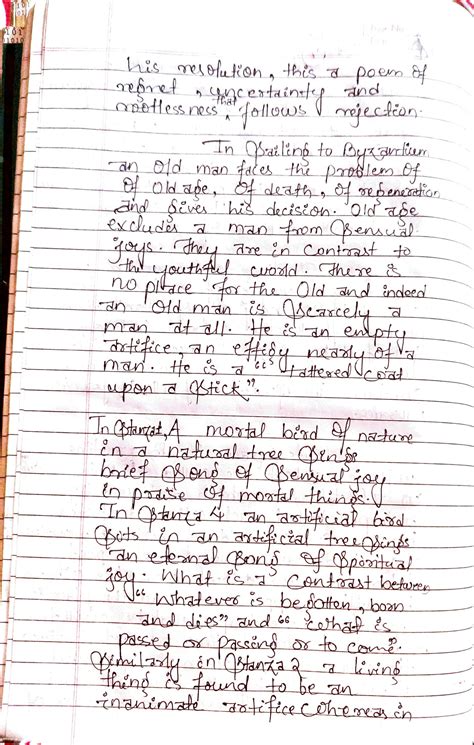 his resolution, this a poem of
regret, uncertainity and
rootlessness, that follows rejection.
In Sailing to Byzantium
an old man faces the problem of
of old age, of death, of regeneration
and gives his decision. Old age
excludes a man from sensual
joys. They are in contrast to
the youthful world. There is
no place for the old and indeed
an old man is scarcely a
man at all. He is an empty
artifice, an effigy nearly of a
man. He is a "tattered coat
upon a stick".
In Stanza1, A mortal bird of nature
in a natural tree sings
brief song of sensual joy
in praise of mortal things.
In Stanza 4 an artificial bird
sits in an artificial tree sings
an eternal song of spiritual
joy. What is a contrast between
"Whatever is begotten, born
and dies" and "what is
passed or passing or to come".
Similarly in Stanza 2 a living
thing is found to be an
inanimate artifice whereas in